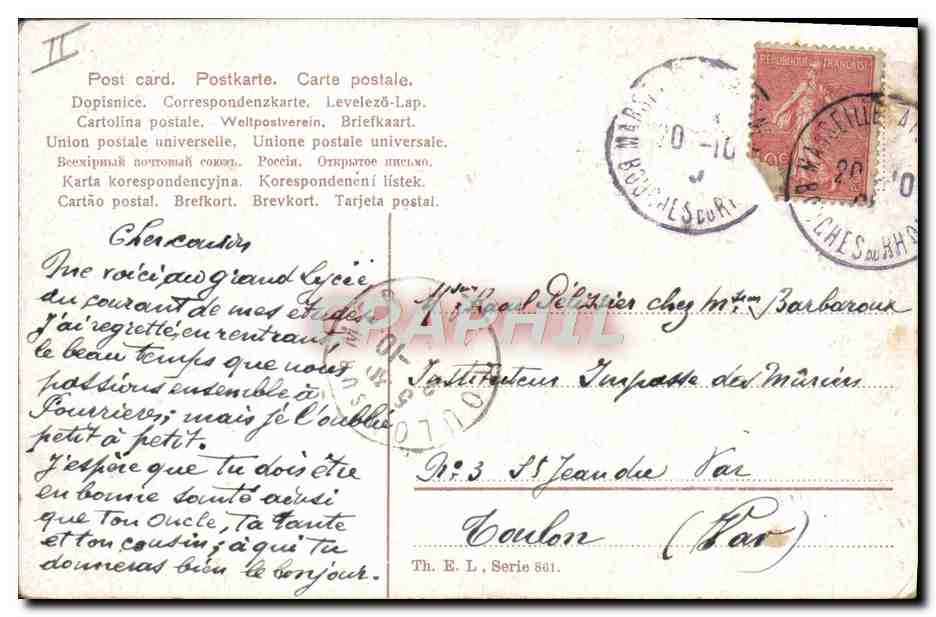 II
Post card. Postkarte. Carte postale.
Dopisnice. Correspondenzkarte. Levelező-Lap.
Cartolina postale. Weltpostverein. Briefkaart.
Union postale universelle. Unione postale universale.
Всемірный почтовый союзъ. Россія. Открытое письмо.
Karta korespondencyjna. Korespondenční lístek.
Cartão postal. Brefkort. Brevkort. Tarjeta postal.
Cher cousin
Me voici au grand Lycée
du courant de mes études
J'ai regretté, en rentrant,
le beau temps que nous
passions ensemble à
Pourrieres; mais je l'oublie
petit à petit.
J'espère que tu dois être
en bonne santé ainsi
que ton oncle, ta tante
et ton cousin; à qui tu
donneras bien le bonjour.
REPUBLIQUE FRANÇAISE
MARSEILLE
20 -10
BOUCHES DU RHÔNE
MARSEILLE
20 10
BOUCHES DU RHÔNE
TOULON SUR MER
-10
CPAPHIL
Raoul Pélissier chez Barbaroux
Instituteur Impasse des Mûriers
No. 3 St Jean du Var
Toulon (Var)
Th. E. L., Serie 861.